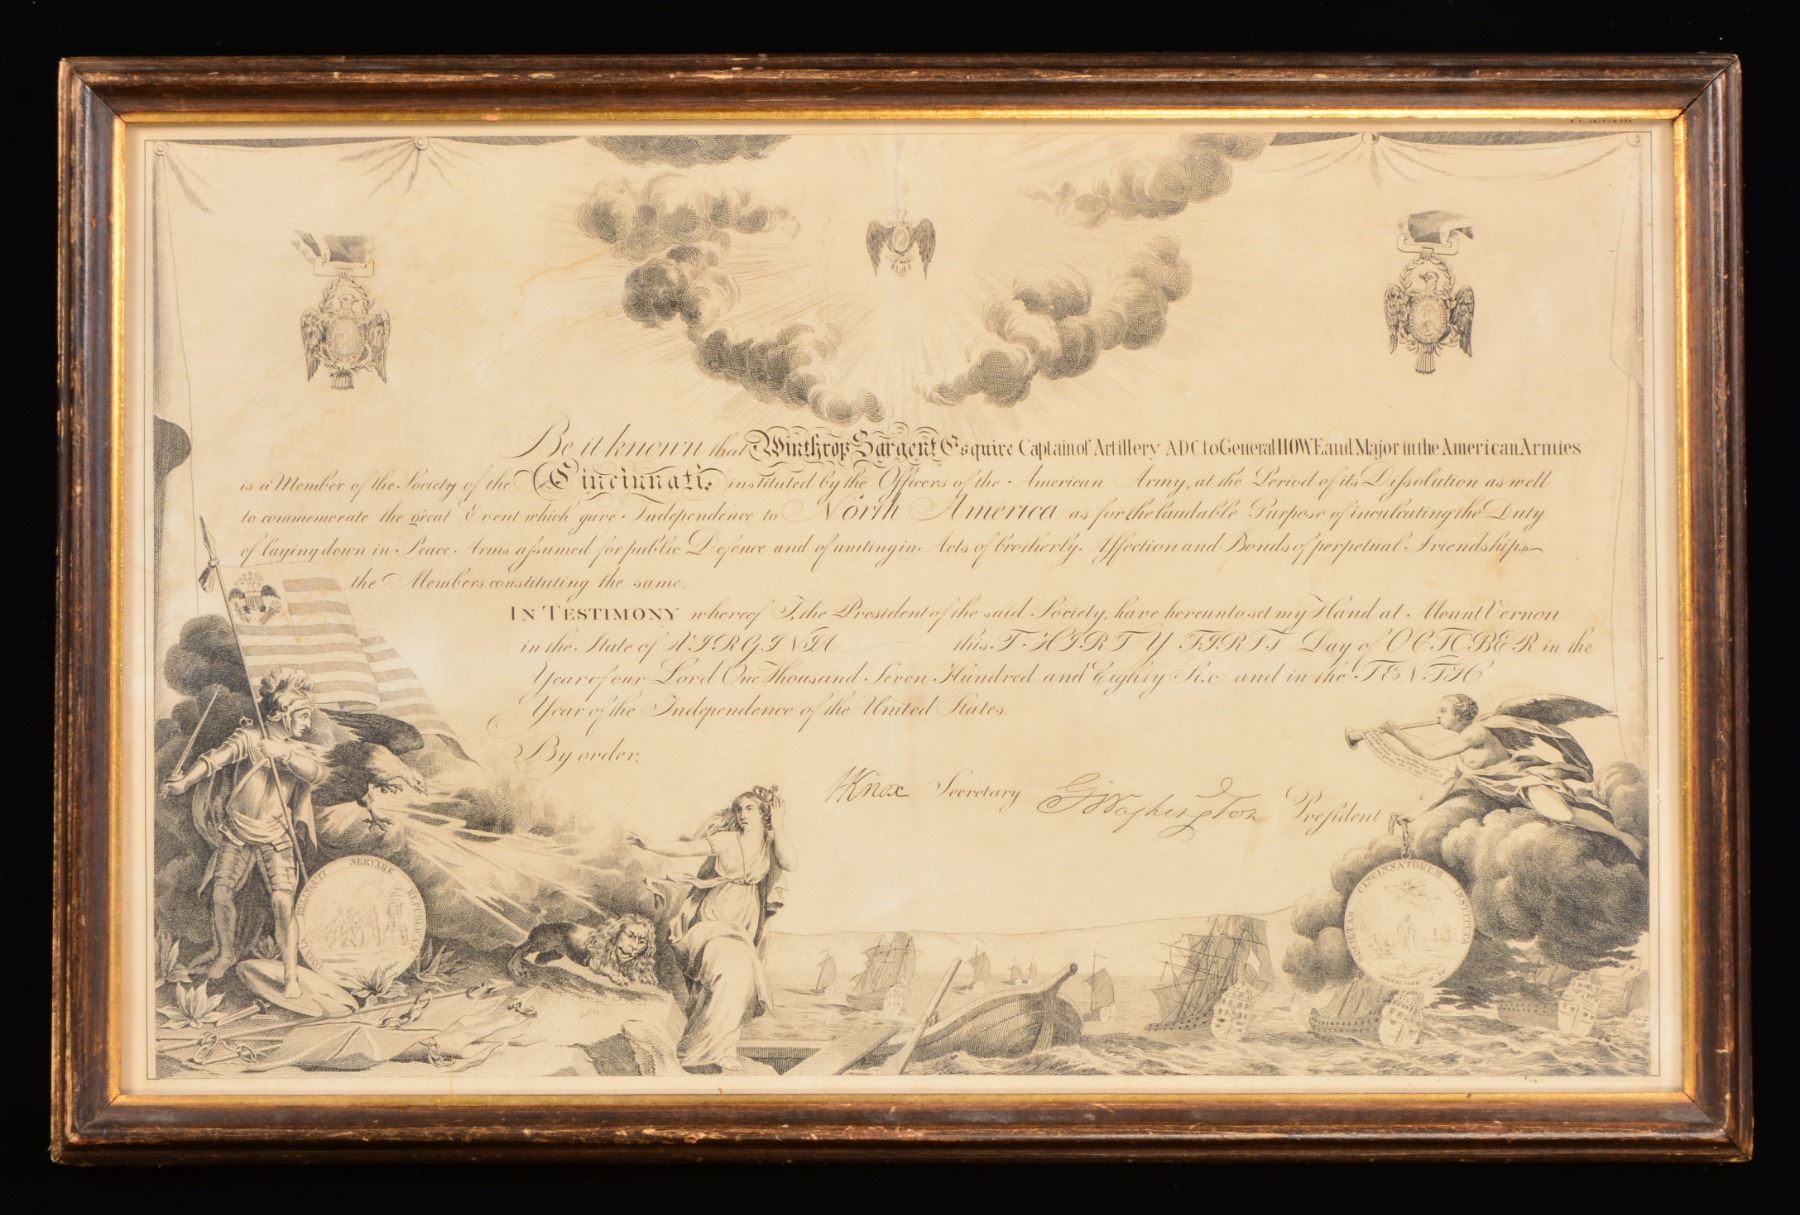 Be it known that Winthrop Sargent Esquire Captain of Artillery ADC to General HOWE and Major in the American Armies
is a Member of the Society of the Cincinnati; instituted by the Officers of the American Army, at the Period of its Dissolution as well
to commemorate the great Event which gave Independence to North America as for the laudable Purpose of inculcating the Duty
of laying down in Peace Arms assumed for public Defence and of uniting in Acts of brotherly Affection and Bonds of perpetual Friendship
the Members constituting the same.
IN TESTIMONY whereof I, the President of the said Society, have hereunto set my Hand at Mount Vernon
in the State of VIRGINIA this THIRTY FIRST Day of OCTOBER in the
Year of our Lord One Thousand Seven Hundred and Eighty Six and in the TENTH
Year of the Independence of the United States.
By order,
HKnox Secretary GWashington President
RELINQUIT SERVARE REMPUBLICAM
SOCIETAS CINCINNATORUM INSTITUTA